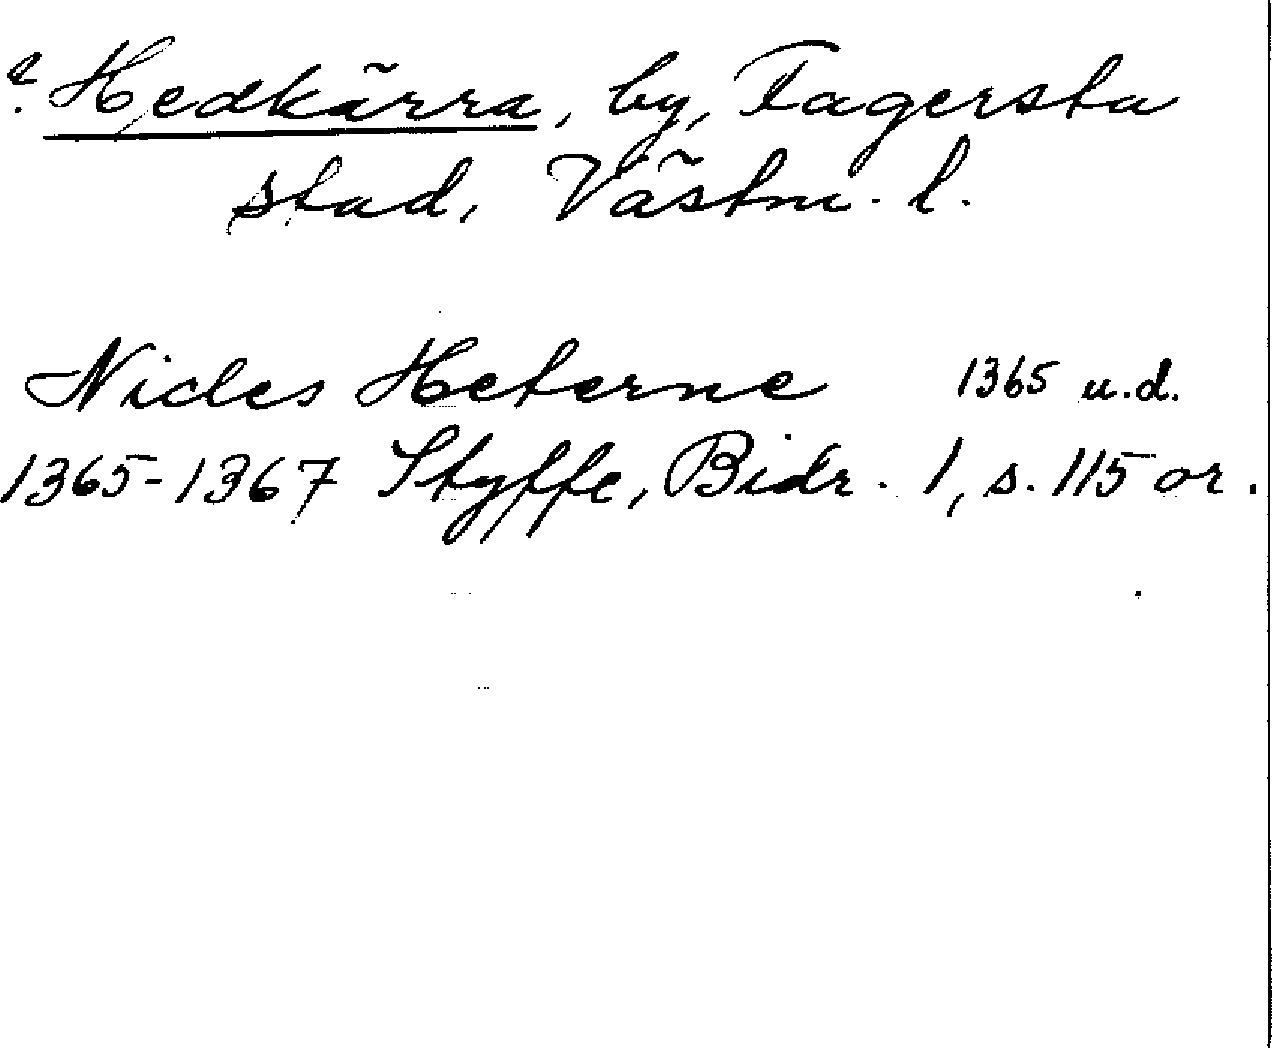 ? Hedkärra, by, Fagersta
stad, Västm. l.
Nicles Heterne 1365 u.d.
1365-1367 Styffe, Bidr. 1, s. 115 or.